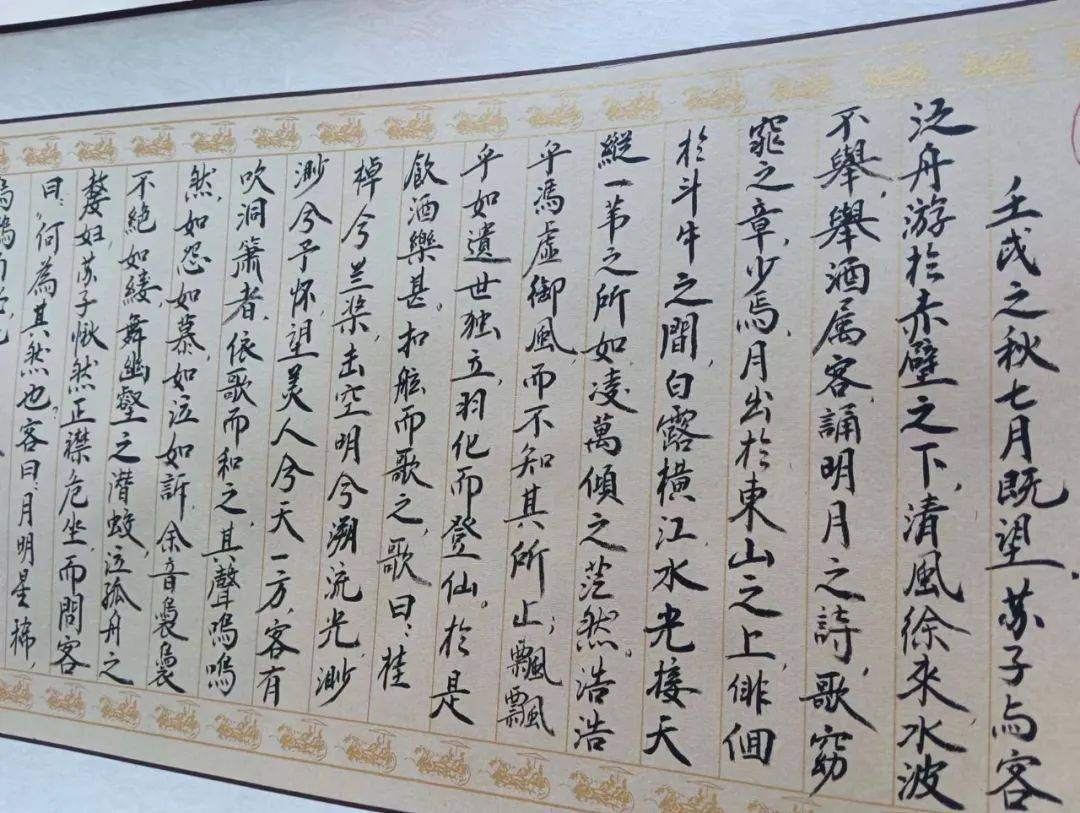 壬戌之秋七月既望,苏子与客
泛舟游於赤壁之下,清風徐来水波
不舉,舉酒属客誦明月之詩,歌窈
窕之章,少焉,月出於東山之上,俳佪
於斗牛之間,白露横江,水光接天
縱一苇之所如凌萬傾之茫然。浩浩
乎馮虚御風而不知其所止;飄飄
乎如遺世独立,羽化而登仙。於是
飲酒樂甚。扣舷而歌之,歌曰:桂
棹兮兰桨,击空明兮溯流光,渺
渺兮予怀,望美人兮天一方,客有
吹洞簫者,依歌而和之,其聲嗚嗚
然,如怨如慕,如泣如訴,余音裊裊
不絕如縷,舞幽壑之潜蛟,泣孤舟之
嫠妇,苏子愀然正襟危坐,而問客
曰:何為其然也?客曰:月明星稀,